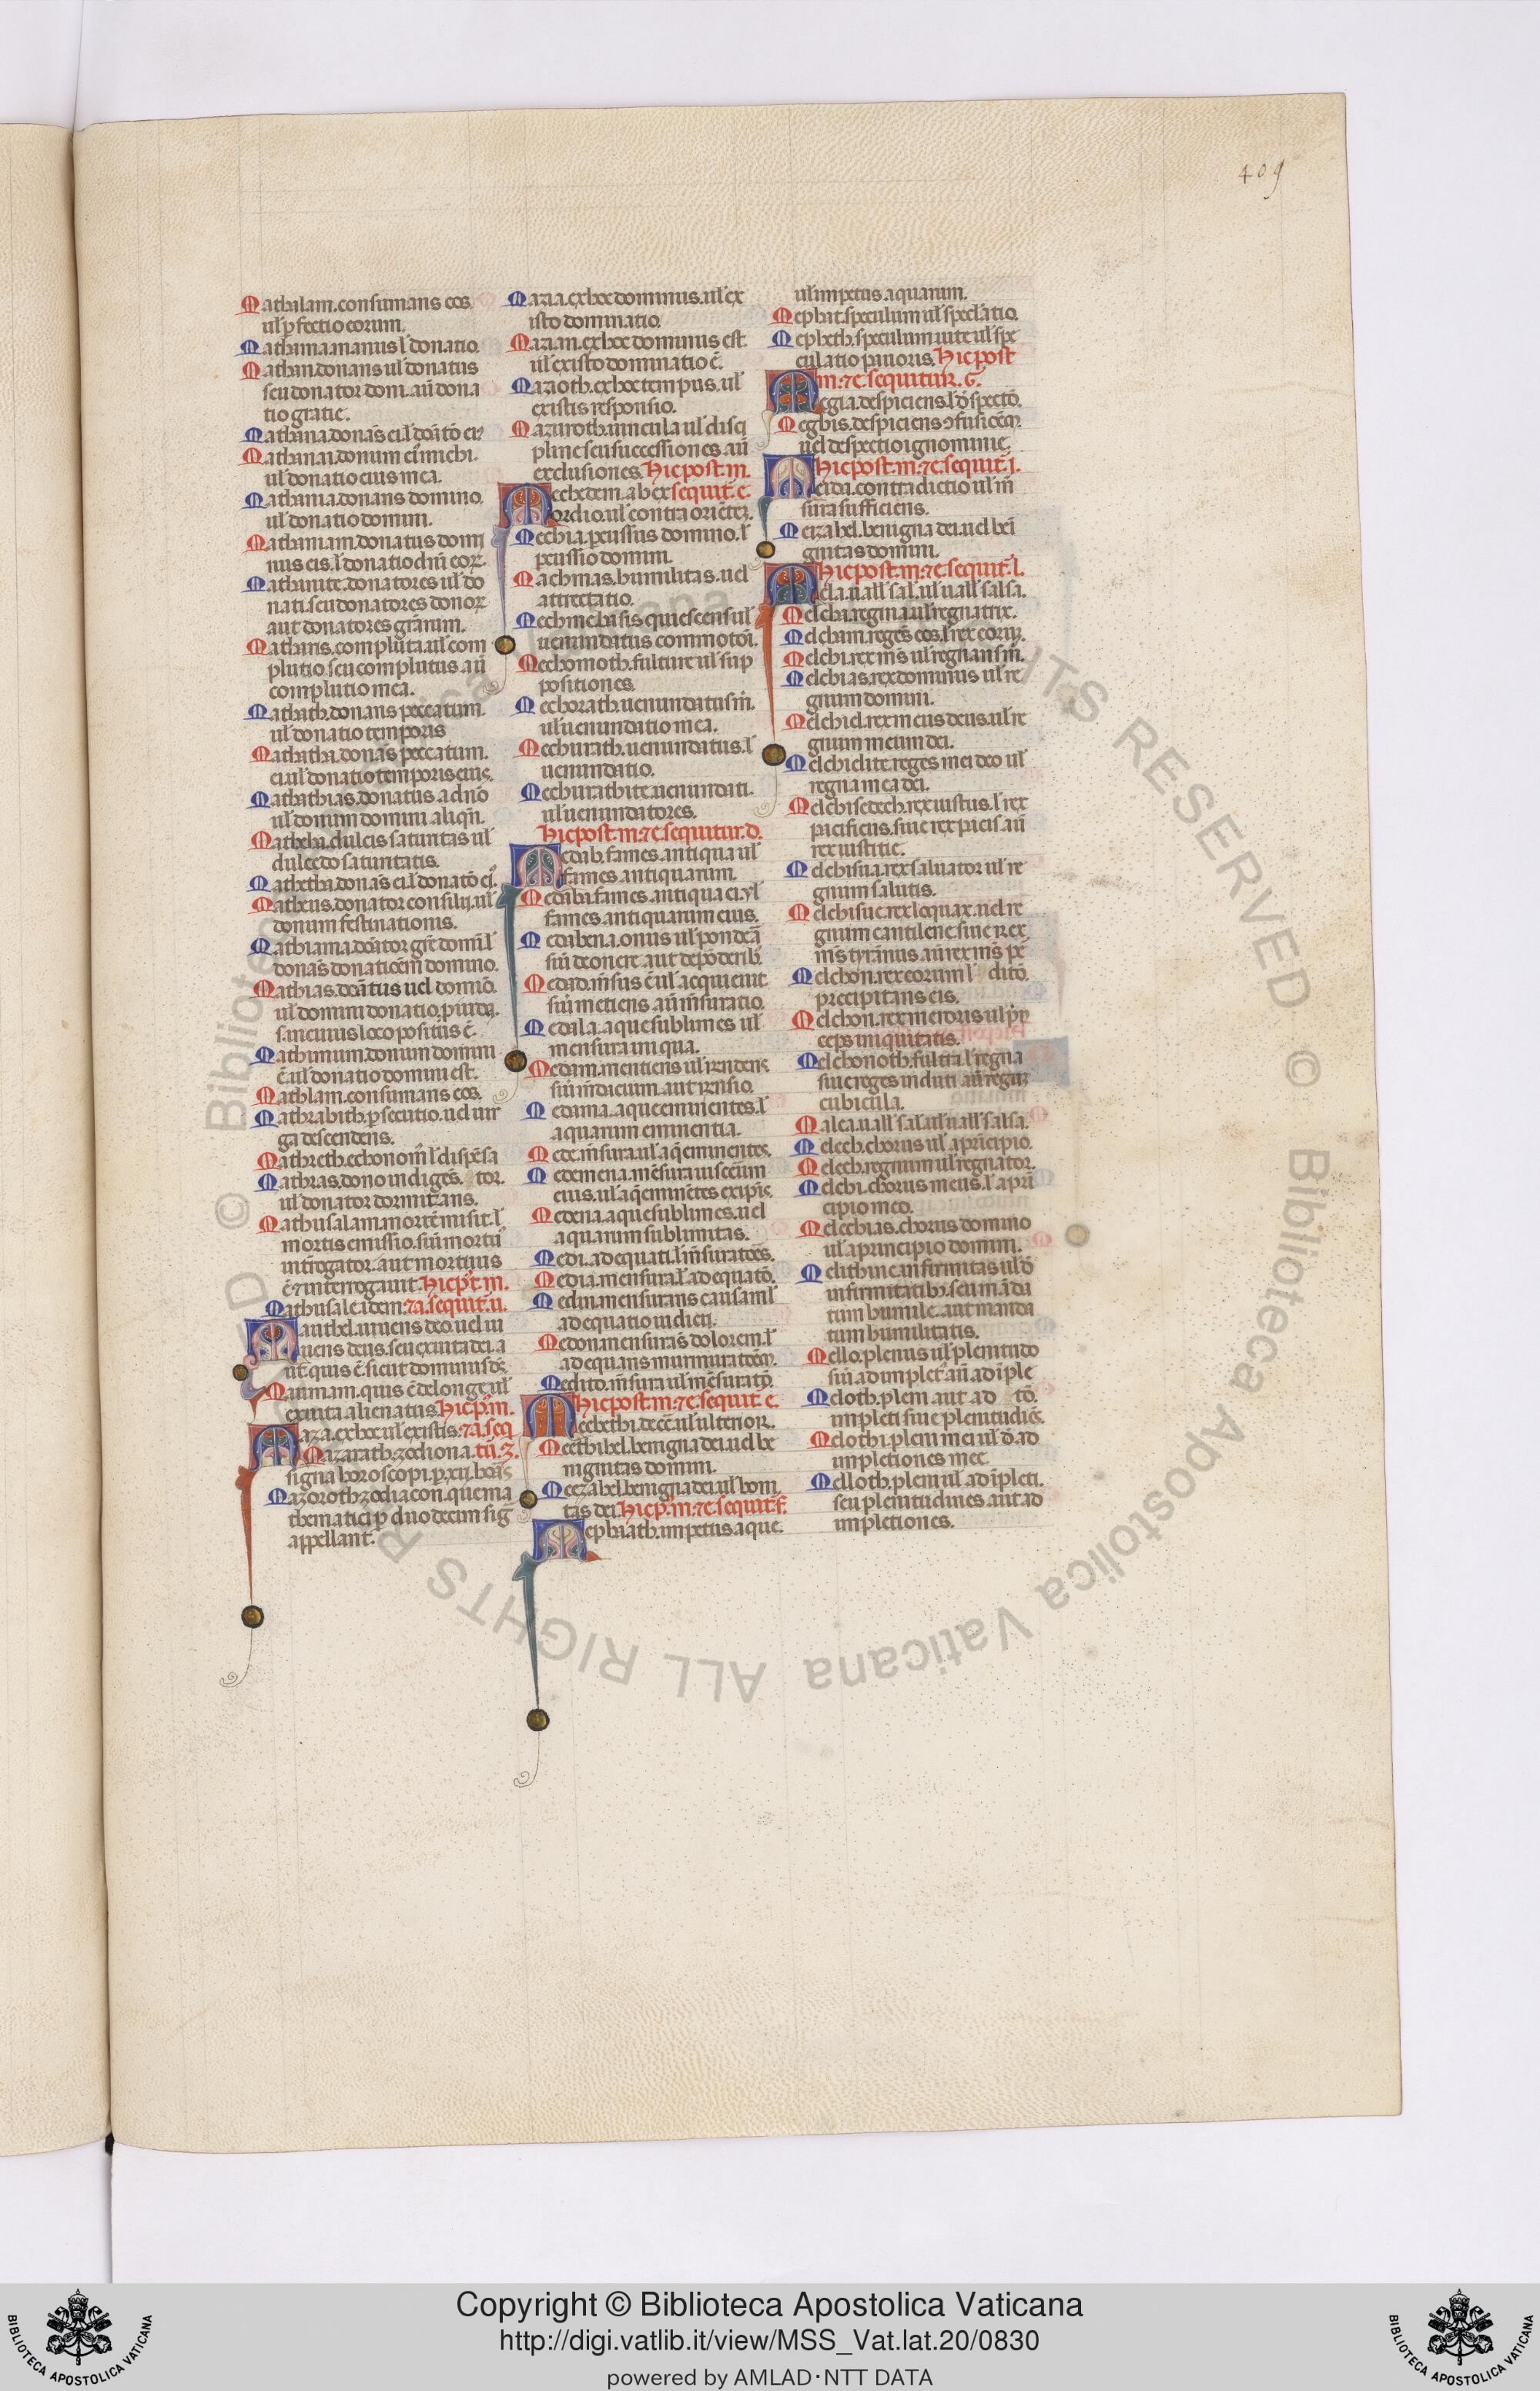 409
Mathilam. consumans eos
ul' perfectio eorum.
Mathima. manus l' donatio.
Mathan. donans ul' donatus
seu donator dom. aū dona
tio gratie.
Mathanai. donum ei michi.
ul' donatio eius mea.
Mathania. donans domino.
ul' donatio domini.
Mathaniam. donatus domi
nus eis. l' donatio dn̄i eoꝝ.
Mathanite. donatores ul' do
nati. seu donatores donoꝝ
aut donatores
Matharis. compluta. ul' com
plutio. seu complutus. aū
complutio mea.
Mathath. donans peccatum.
ul' donatio temporis
Mathathi. donās peccatum.
ei. ul' donatio temporis eius.
Mathathias. donatus a dn̄o
ul' donum domini
dulcis saturitas ul'
dulcedo saturitatis.
Matheus. donator consilij. ul'
donum festinationis.
donās domino.
Mathias.
ul' domini donatio.
Mathimum. donum domini
ē. ul' donatio domini est.
Mathlam. consumans eos.
Mathrabith. ꝑsecutio. uel uir
ga descendens.
Mathreth.
Mathras. dono indigēs. tor.
ul' donator dormitans.
Mathusalam. mortē misit. l'
mortis emissio. siū mortū
interrogator. aut mortuus
ē ⁊ interrogauit. Hic pꝰt. m.
Mathusale idem: ⁊ a. sequit̄. u.
Mauthel. uiuens deo. uel ui
uens deus. seu ex uita dei. a
ut quis ē sicut dominus dꝰ.
Mauman. quis ē de longe ul'
ex uita alienatus. Hic pꝰ. m.
Maza. ex hoc ul' ex istis: ⁊ a. seq̄
Mazarath. zodiona. tū. z.
signa horoscopi.
Mazoroth. zodiacon. que ma
thematici ꝑ duodecim siḡ
appellant̄.
Mazia. ex hoc dominus. ul' ex
isto dominatio.
Mazian. ex hoc dominus est.
ul' ex isto dominatio ē.
Mazioth. ex hoc tempus. ul'
ex istis responsio.
Mazuroth. uincula ul' disci
pline seu successiones. aū
exclusiones. Hic post. m.
Mecedem. ab ex sequit̄. e.
ordio. ul' contra
Mechia. ꝑcussus domino. l'
ꝑcussio domini.
Machmas. humilitas. uel
attrectatio.
Mechmebasis quiescens ul'
uenundatus
Mechomoth. fulture ul' sup
positiones.
Mechorath. uenundatus
ul' uenundatio mea.
Mechurath. uenundatus. l'
uenundatio.
Mechurathite. uenundati.
ul' uenundatores.
Hic post. m. ⁊ e. sequitur. d.
Medab. fames. antiqua ul'
fames. antiquarum.
Medaba. fames. antiqua ei. ul'
fames. antiquarum eius.
Medabena. onus ul'
siū de onere aut
Medad. mensus ē ul' acquieuit
siū metiens. aū mensuratio.
Medala. aque sublimes ul'
mensura iniqua.
Medam. mentiens ul' iudens
siū iudicium.
Medama. aque eminentes. l'
aquarum eminentia.
Mede. mensura. ul' aq̄ eminentes.
Medemena. mensura
eius. ul' aq̄ eminētes
Medena. aque sublimes. uel
aquarum sublimitas.
Medi. adequati.
Media. mensura l'
Medin. mensurans causam l'
adequatio iudicij.
Medon. mensurās dolorem. l'
adequans
Medito. mensura ul'
Hic post. m. ⁊ e. sequit̄. e.
Meethibel. benigna dei. uel be
nignitas domini.
Meezabel. benigna dei. ul' boni
tas dei. Hic pꝰ. m. ⁊ e. sequit̄. f.
Mephaath. impetus. aque.
ul' impetus aquarum.
Mephat. speculum ul' speclatio.
Mepheth. speculum uite ul' spe
culatio pauoris. Hic post
m. ⁊ e. sequitur. G.
Megia. despiciens.
Megbis. despiciens
uel despectio ignominie.
Hic post. m. ⁊ e. sequit̄. j.
Meida. contradictio ul' in
sura sufficiens.
Meizabel. benigna dei. uel beni
gnitas domini.
Hic post. m. ⁊ e. sequit̄. l.
Mela. uall' sal'. ul' uall' salsa.
Melcha. regina. ul' regnatrix.
Melcham. regēs eos. l' rex eoꝝ.
Melchi. rex ms̄ ul' regnans
Melchias. rex dominus ul' re
gnum domini.
Melchiel. rex meus deus. ul' re
gnum meum dei.
Melchielite. reges mei deo ul'
regna mea dei.
Melchisedech. rex iustus. l' rex
pacificus. siue rex pacis. aū
rex iustitie.
Melchisua. rex saluator ul' re
gnum salutis.
Melchisue. rex loquax. uel re
gnum cantilene. siue rex
ms̄ tyrānus. aū rex ms̄
Melchon. rex eorum l'
precipitans eis.
Melchon. rex meroris ul' prī
ceps iniquitatis.
Melchonoth. fultra. l' regna
siue reges induti. aū
cubicula.
Malea. uall' sal'. ul' uall' salsa.
Melech. chorus ul' a principio.
Melech. regnum ul' regnator.
Melechi. chorus meus. l' a pri
cipio meo.
Melechias. chorus domino
ul' a principio domini.
Melithine. infirmitas ul'
infirmitatibꝰ.
tum humile. aut manda
tum humilitatis.
Mello. plenus ul' plenitudo
Meloth. pleni aut ad tō.
impleti siue
Melothi. pleni mei ul'
impletiones mee.
Melloth. pleni ul' adīpleti.
seu plenitudines. aut ad
impletiones.
Copyright © Biblioteca Apostolica Vaticana
http://digi.vatlib.it/view/MSS_Vat.lat.20/0830
powered by AMLAD·NTT DATA
BIBLIOTECA APOSTOLICA VATICANA
BIBLIOTECA APOSTOLICA VATICANA
© Biblioteca Apostolica Vaticana ALL RIGHTS RESERVED